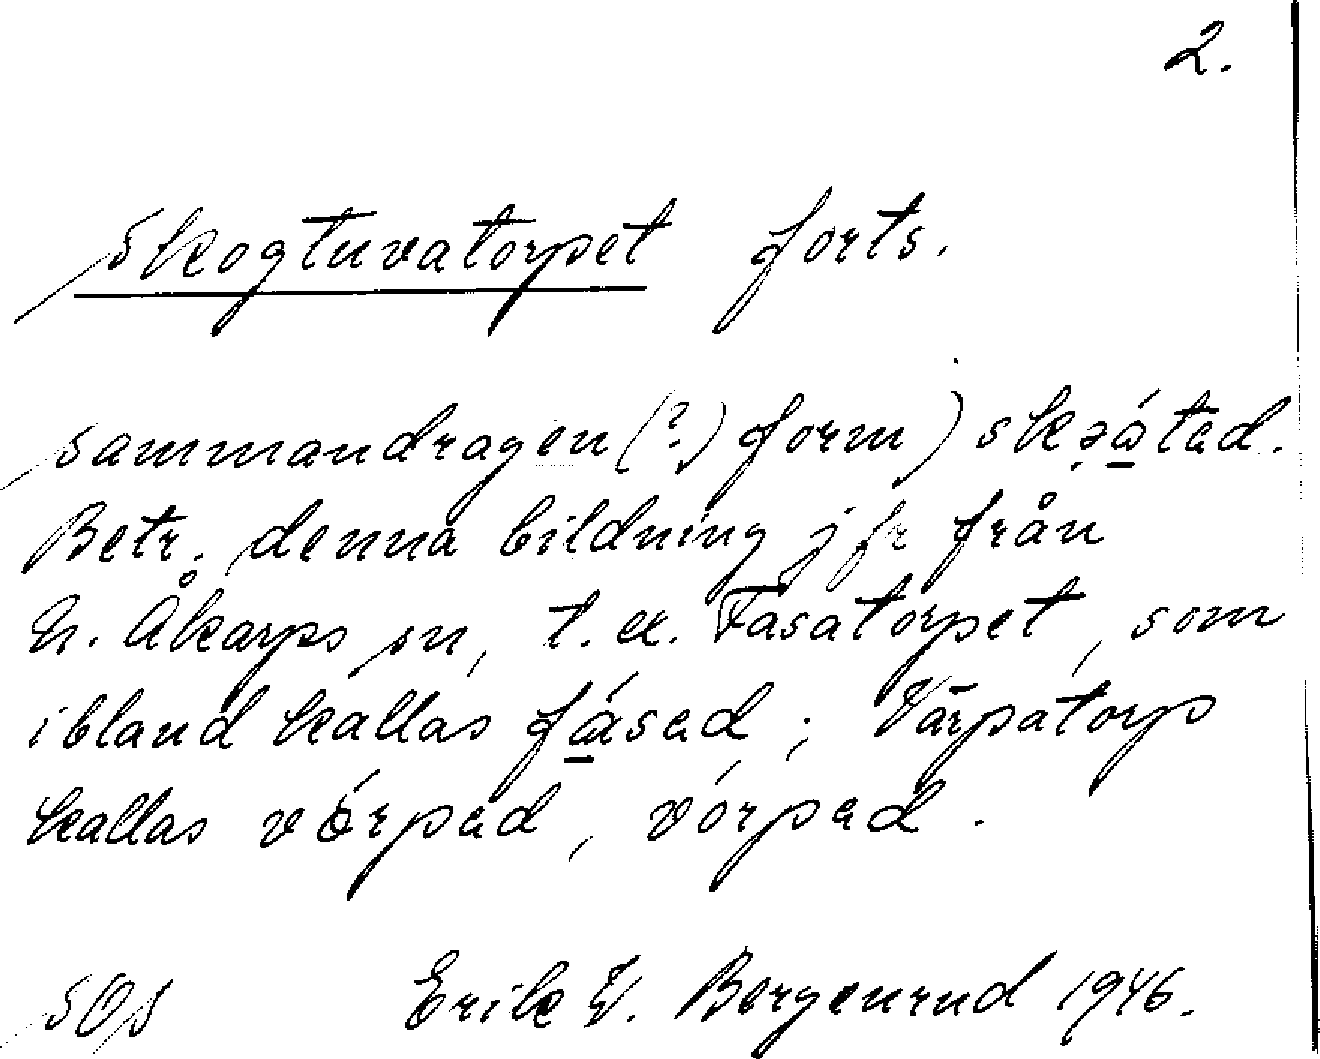 2.
Skogtuvatorpet forts.
sammandragen (?) form) skǫ́tad.
Betr. denna bildning jfr från
N. Åkarps sn, t. ex. Fasatorpet, som
ibland kallas fásad; Värpatorp
kallas vӧ́rpad, vórpad.
SOS Erik W. Bergenrud 1946.